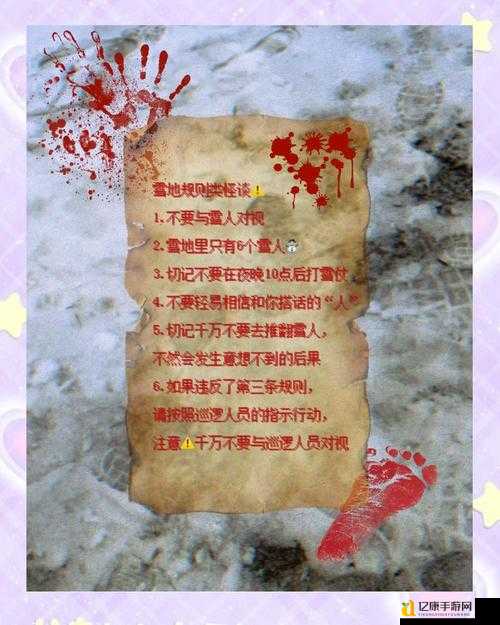 雪地规则类怪谈⚠️
1.不要与雪人对视
2.雪地里只有6个雪人⛄
3.切记不要在夜晚10点后打雪仗
4.不要轻易相信和你搭话的“人”
5.切记千万不要去推翻雪人，
不然会发生意想不到的后果
6.如果违反了第三条规则，
请按照巡逻人员的指示行动，
注意⚠️千万不要与巡逻人员对视
亿康手游网